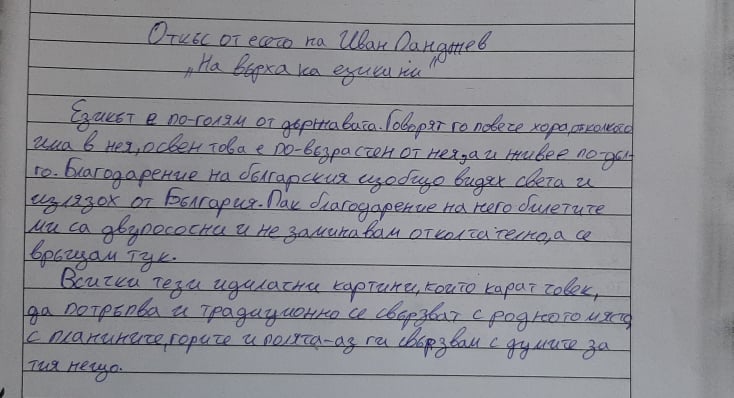 Откъс от есето на Иван Ланджев
„На върха на езика ни"
Езикът е по-голям от държавата. Говорят го повече хора, отколкото
има в нея, освен това е по-възрастен от нея, а и живее по-дъл-
го. Благодарение на българския изобщо видях света и
излязох от България. Пак благодарение на него билетите
ми са двупосочни и не заминавам отколчателно, а се
връщам тук.
Всички тези идилични картини, които карат човек,
да потръпва и традиционно се свързват с родното място,
с планините, горите и полята-аз ги свързвам с думите за
тия нещо.